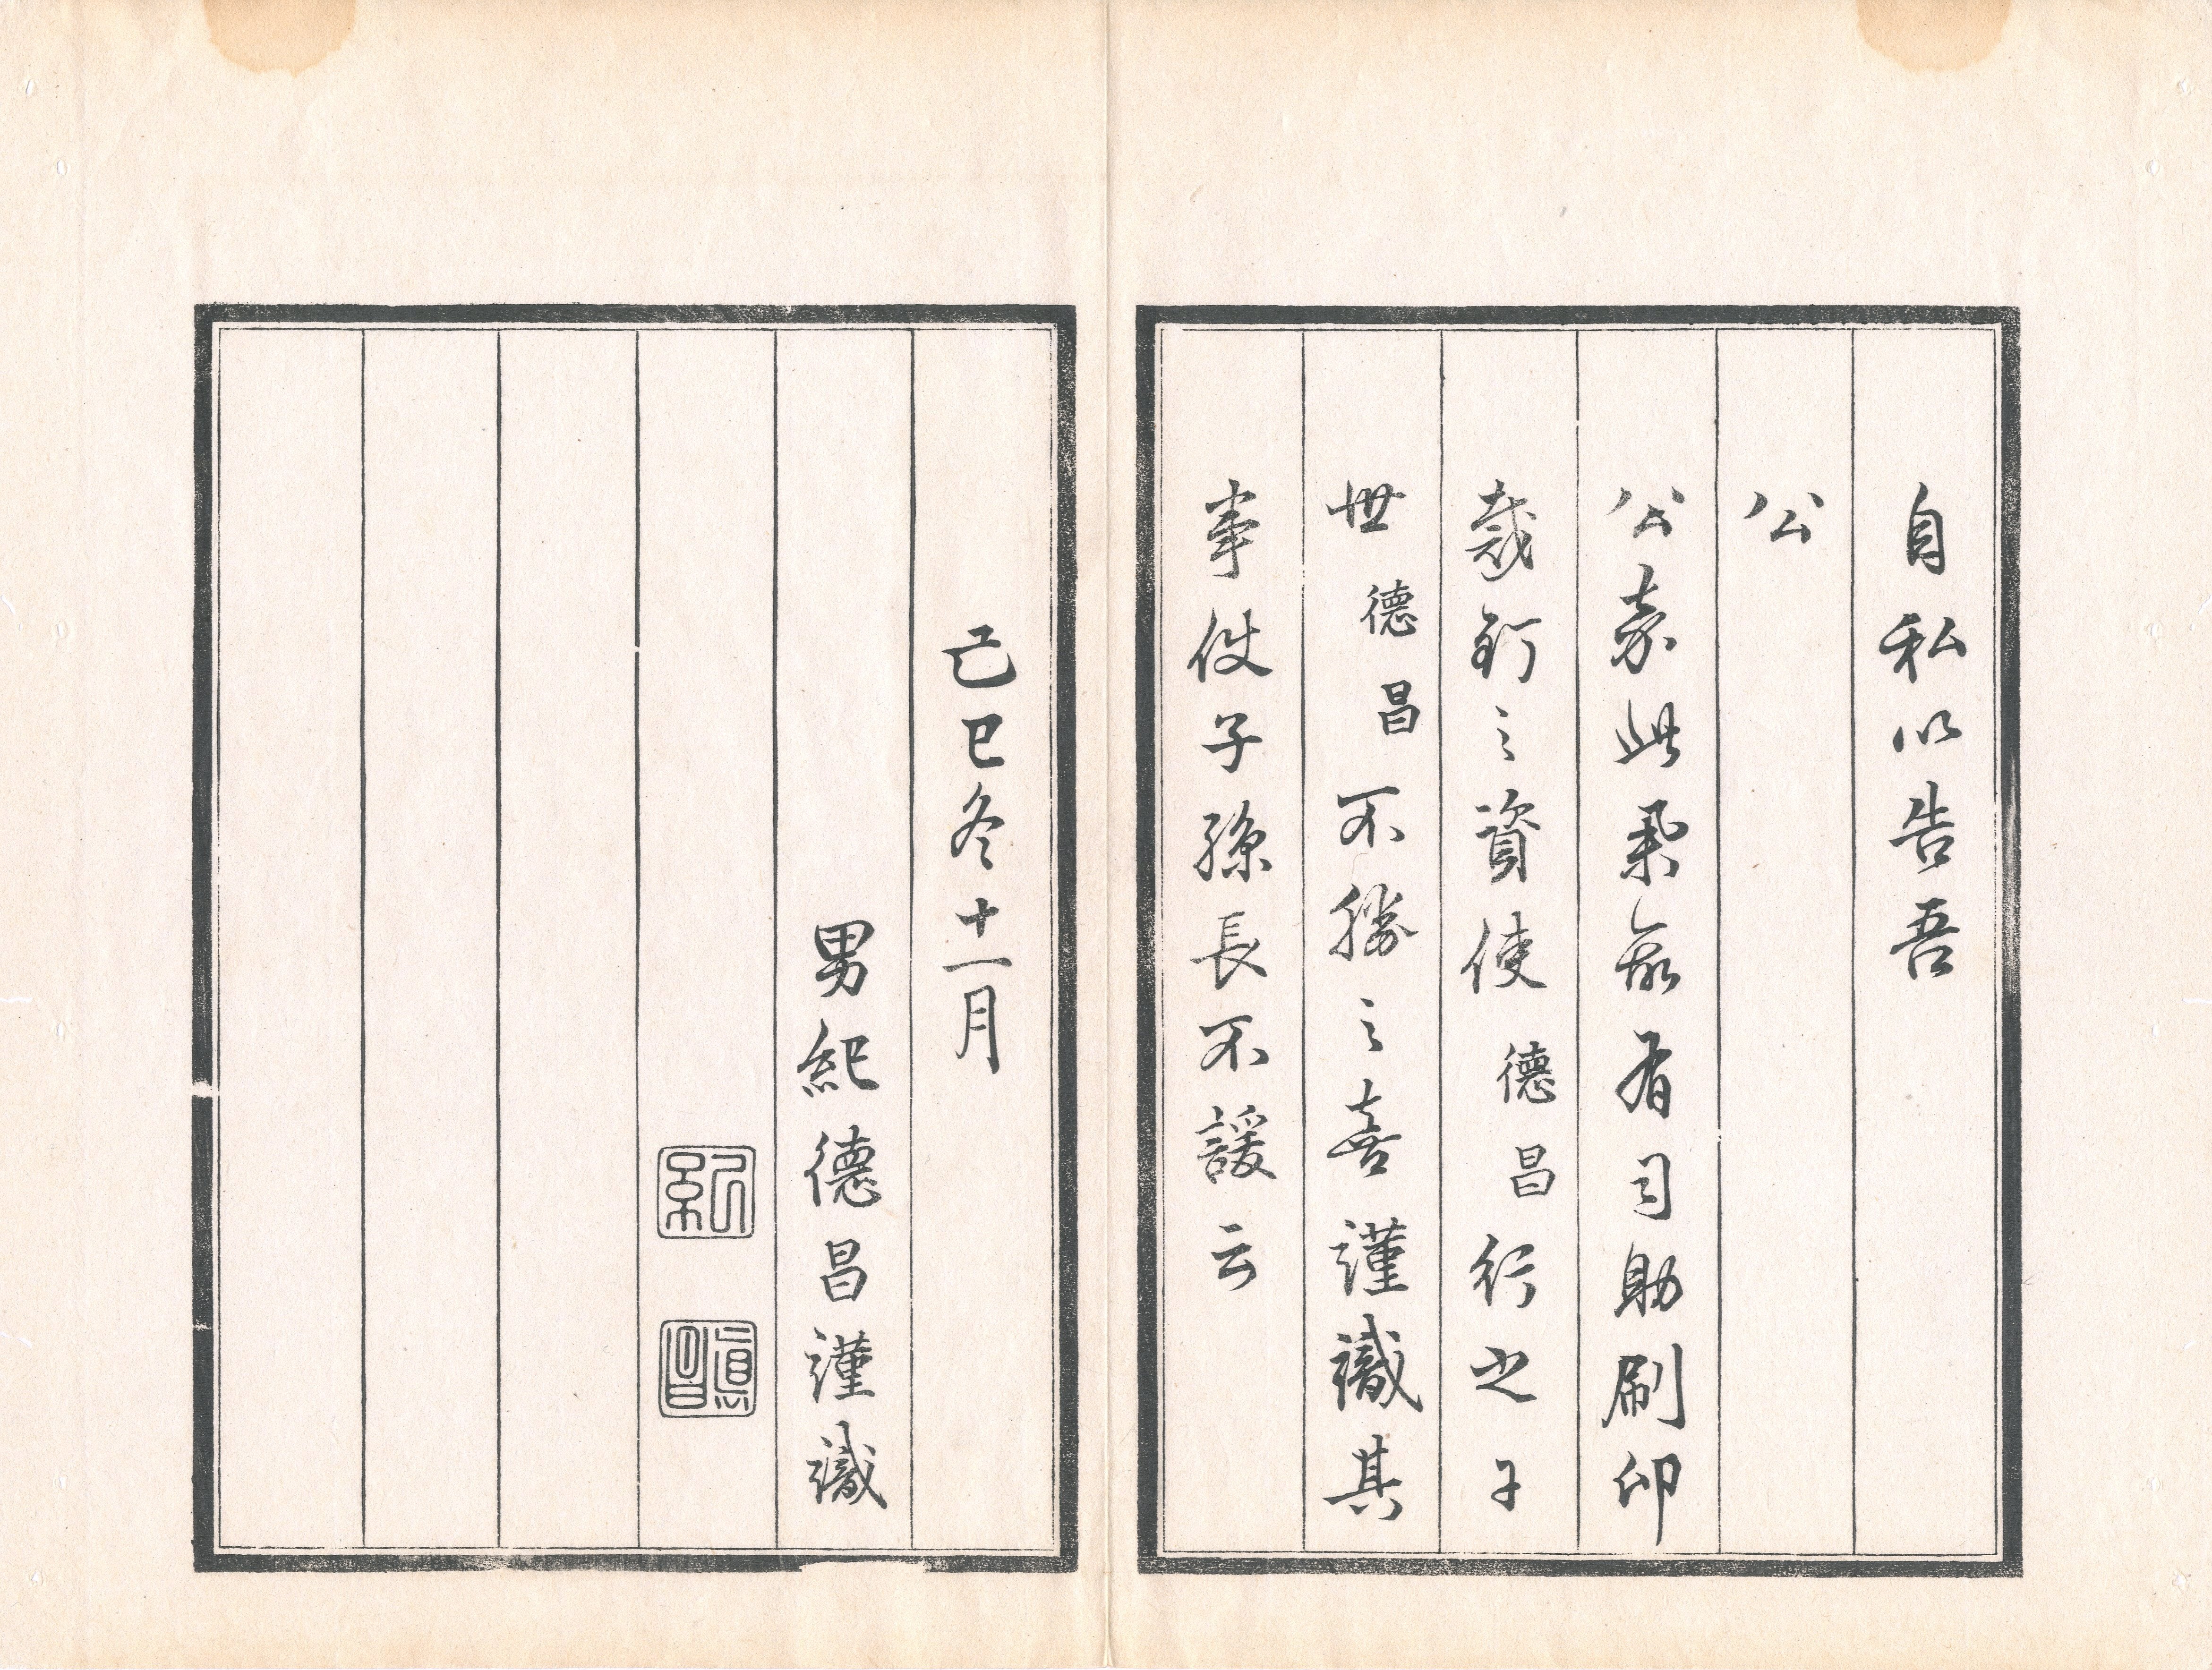 自私以告吾
公
公嘉此業命有司助刷印
裁釘之資使德昌行之于
世德昌不勝之喜謹識其
事使子孫長不諼云
己巳冬十一月
男紀德昌謹識
紀